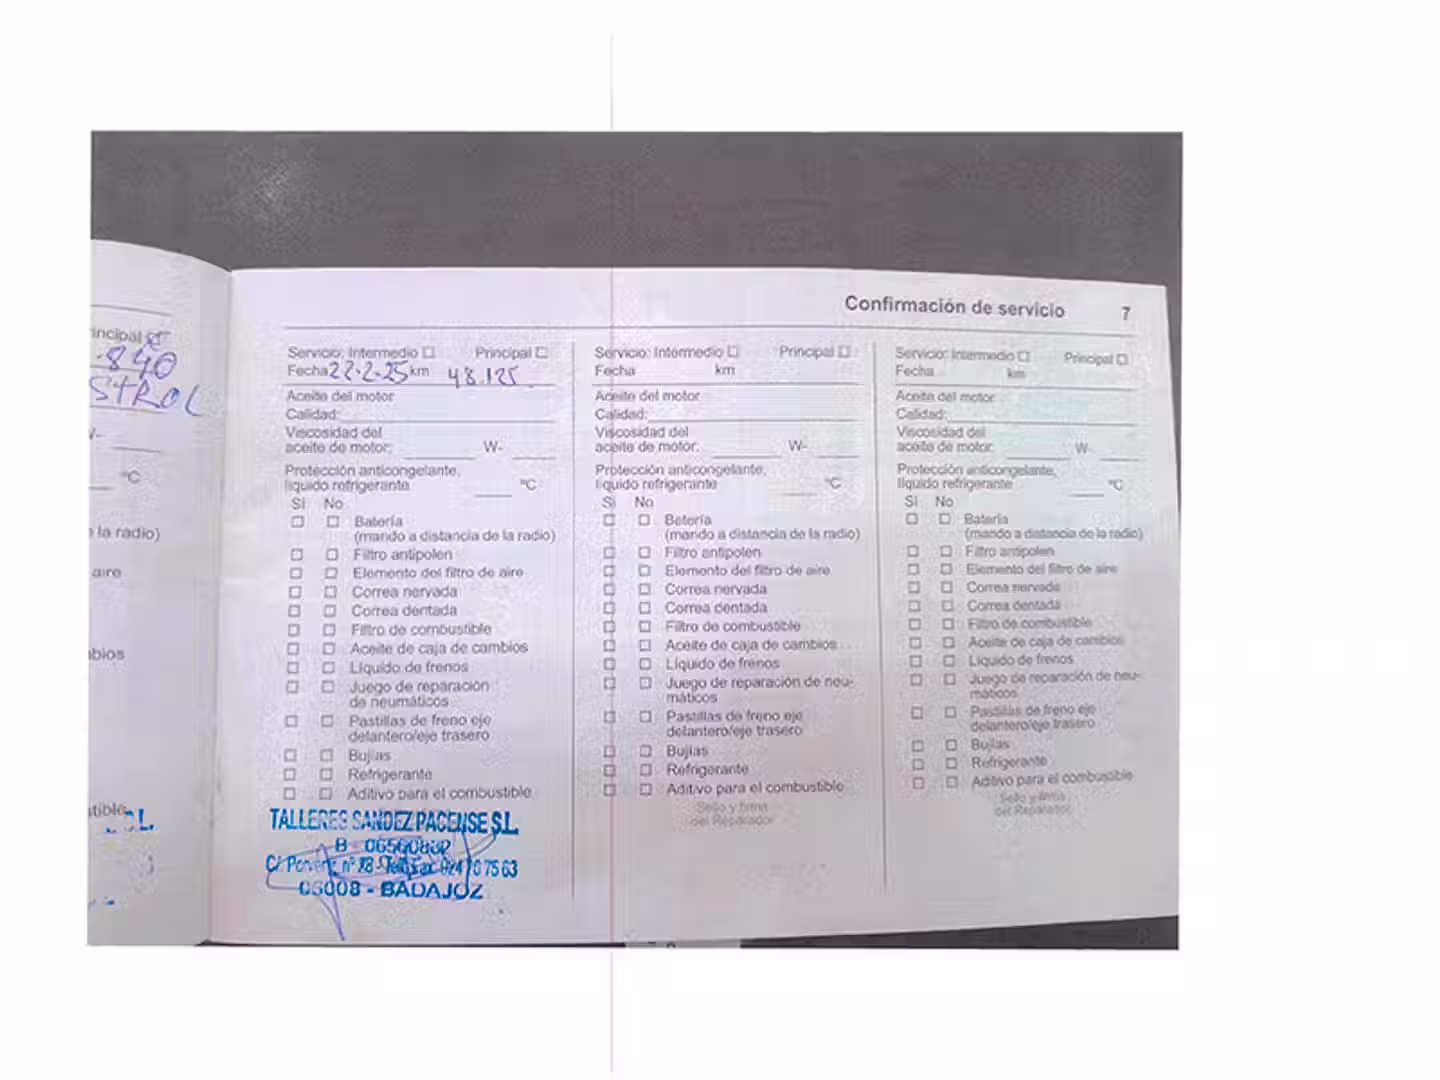 Confirmación de servicio 7
incipal
-840
STROL
W-
°C
la radio)
aire
bios
tible
S.L.
Servicio: Intermedio Principal
Fecha 22-2-25 km 48.125
Aceite del motor
Calidad:
Viscosidad del
aceite de motor: W-
Protección anticongelante,
líquido refrigerante °C
Sí No
Batería
(mando a distancia de la radio)
Filtro antipolen
Elemento del filtro de aire
Correa nervada
Correa dentada
Filtro de combustible
Aceite de caja de cambios
Líquido de frenos
Juego de reparación
de neumáticos
Pastillas de freno eje
delantero/eje trasero
Bujías
Refrigerante
Aditivo para el combustible
TALLERES SANDEZ PACENSE S.L.
B -
C/. nº 28 - 75 63
06008 - BADAJOZ
Servicio: Intermedio Principal
Fecha km
Aceite del motor
Calidad:
Viscosidad del
aceite de motor: W-
Protección anticongelante,
líquido refrigerante °C
Sí No
Batería
(mando a distancia de la radio)
Filtro antipolen
Elemento del filtro de aire
Correa nervada
Correa dentada
Filtro de combustible
Aceite de caja de cambios
Líquido de frenos
Juego de reparación de neu-
máticos
Pastillas de freno eje
delantero/eje trasero
Bujías
Refrigerante
Aditivo para el combustible
Sello y firma
del Reparador
Servicio: Intermedio Principal
Fecha km
Aceite del motor
Calidad:
Viscosidad del
aceite de motor: W-
Protección anticongelante,
líquido refrigerante °C
Sí No
Batería
(mando a distancia de la radio)
Filtro antipolen
Elemento del filtro de aire
Correa nervada
Correa dentada
Filtro de combustible
Aceite de caja de cambios
Líquido de frenos
Juego de reparación de neu-
máticos
Pastillas de freno eje
delantero/eje trasero
Bujías
Refrigerante
Aditivo para el combustible
Sello y firma
del Reparador